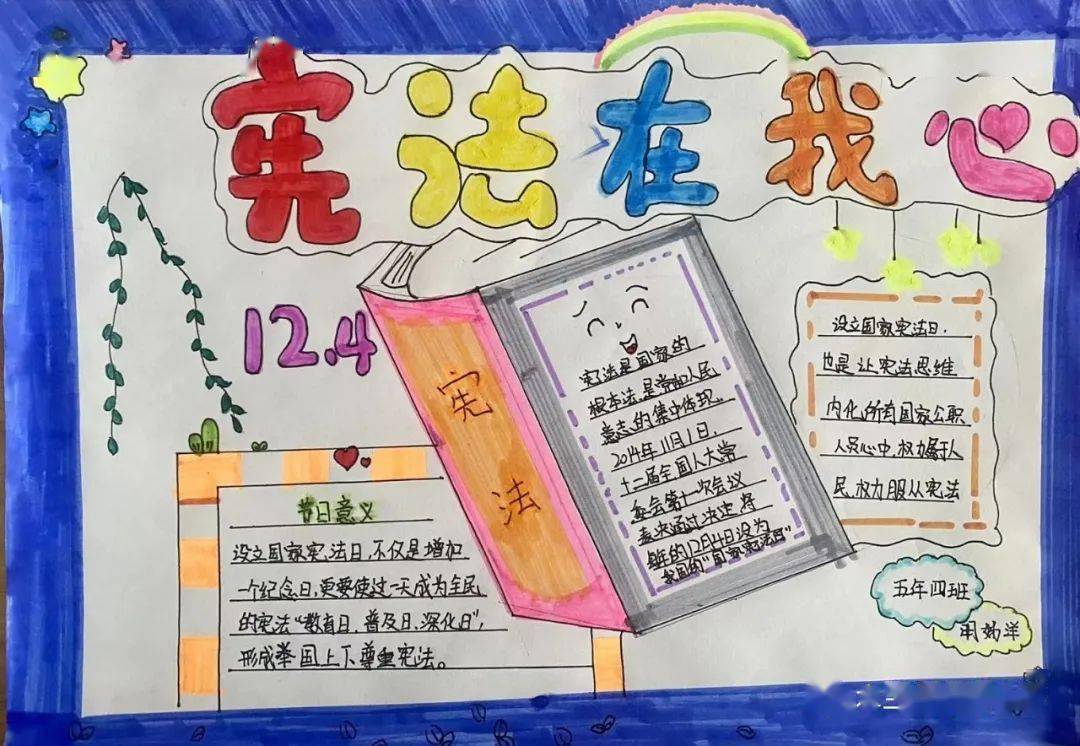 宪法在我心
12.4
宪法
宪法是国家的
根本法,是党和人民
意志的集中体现。
2014年11月1日,
十二届全国人大常
委会第十一次会议
表决通过决定,将
每年的12月4日设为
我国的“国家宪法日”
设立国家宪法日,
也是让宪法思维
内化所有国家公职
人员心中,权力属于人
民,权力服从宪法
节日意义
设立国家宪法日,不仅是增加
一个纪念日,更要使这一天成为全民
的宪法“教育日、普及日、深化日”,
形成举国上下尊重宪法。
五年四班